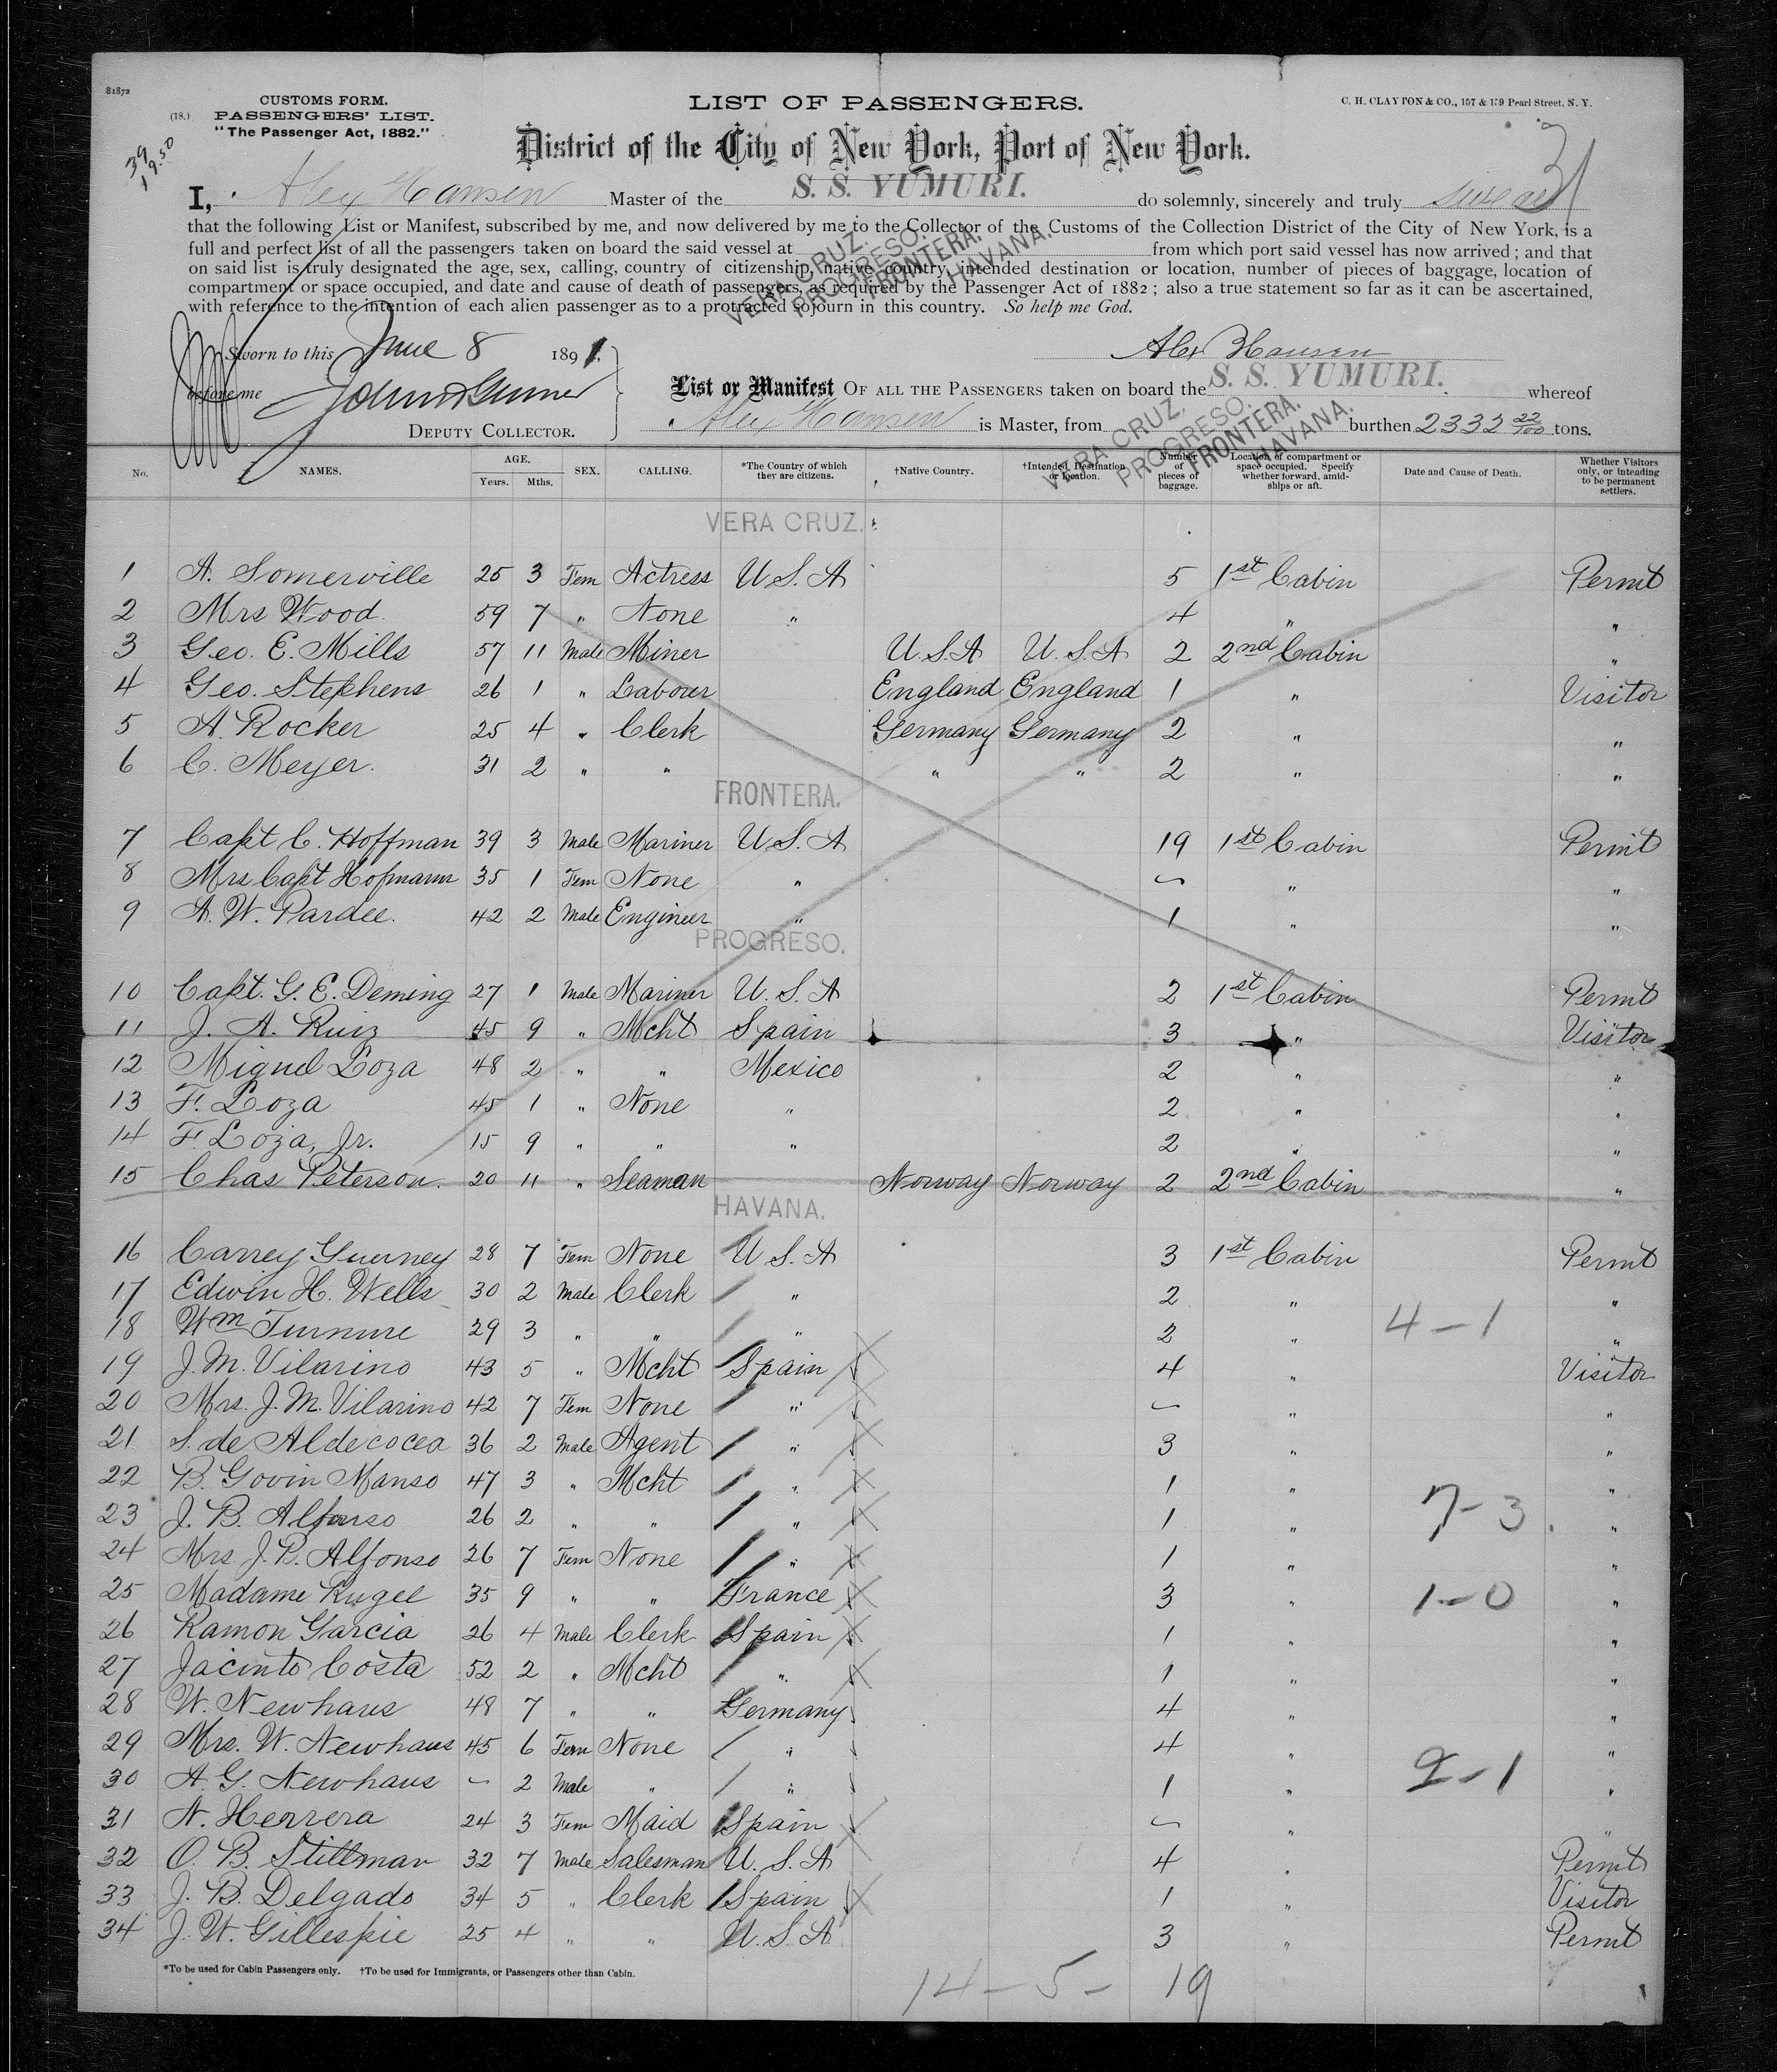 81872
CUSTOMS FORM.
(18.) PASSENGERS' LIST.
"The Passenger Act, 1882."
39
19.50
LIST OF PASSENGERS.
C. H. CLAYTON & CO., 157 & 159 Pearl Street, N. Y.
District of the City of New York, Port of New York.
I, Alex Hansen Master of the S. S. YUMURI. do solemnly, sincerely and truly swear
that the following List or Manifest, subscribed by me, and now delivered by me to the Collector of the Customs of the Collection District of the City of New York, is a
full and perfect list of all the passengers taken on board the said vessel at VERA CRUZ. PROGRESO. FRONTERA. HAVANA. from which port said vessel has now arrived; and that
on said list is truly designated the age, sex, calling, country of citizenship, native country, intended destination or location, number of pieces of baggage, location of
compartment or space occupied, and date and cause of death of passengers, as required by the Passenger Act of 1882; also a true statement so far as it can be ascertained,
with reference to the intention of each alien passenger as to a protracted sojourn in this country. So help me God.
Sworn to this June 8 1891,
Alex Hansen
before me
DEPUTY COLLECTOR.
List or Manifest OF ALL THE PASSENGERS taken on board the S. S. YUMURI. whereof
Alex Hansen is Master, from VERA CRUZ. PROGRESO. FRONTERA. HAVANA. burthen 2332 22/100 tons.
No. NAMES. AGE. Years. Mths. SEX. CALLING. *The Country of which they are citizens. †Native Country. †Intended Destination or location. Number of pieces of baggage. Location of compartment or space occupied. Specify whether forward, amidships or aft. Date and Cause of Death. Whether Visitors only, or intending to be permanent settlers.
VERA CRUZ.
1 A. Somerville 25 3 Fem Actress U.S.A 5 1st Cabin Permit
2 Mrs Wood 59 7 " None " 4 " "
3 Geo. E. Mills 57 11 Male Miner U.S.A U.S.A 2 2nd Cabin "
4 Geo. Stephens 26 1 " Laborer England England 1 " Visitor
5 A. Rocker 25 4 " Clerk Germany Germany 2 " "
6 C. Meyer. 31 2 " " " " 2 " "
FRONTERA.
7 Capt C. Hoffman 39 3 Male Mariner U.S.A 19 1st Cabin Permit
8 Mrs Capt Hofmann 35 1 Fem None " - " "
9 A. W. Pardee. 42 2 Male Engineer " 1 " "
PROGRESO.
10 Capt. G. E. Deming 27 1 Male Mariner U.S.A 2 1st Cabin Permit
11 J. A. Ruiz 45 9 " Mcht Spain 3 " Visitor
12 Miguel Loza 48 2 " " Mexico 2 " "
13 F. Loza 45 1 " None " 2 " "
14 F. Loza, Jr. 15 9 " " " 2 " "
15 Chas Peterson. 20 11 " Seaman Norway Norway 2 2nd Cabin "
HAVANA.
16 Carrey Guerney 28 7 Fem None U.S.A 3 1st Cabin Permit
17 Edwin H. Wells 30 2 Male Clerk " 2 " "
18 Wm Turnure 29 3 " " " 2 " 4-1 "
19 J. M. Vilarino 43 5 " Mcht Spain 4 " Visitor
20 Mrs. J. M. Vilarino 42 7 Fem None " - " "
21 S. de Aldecocea 36 2 Male Agent " 3 " "
22 B. Govin Manso 47 3 " Mcht " 1 " "
23 J. B. Alfonso 26 2 " " " 1 " 7-3 "
24 Mrs. J. B. Alfonso 26 7 Fem None " 1 " "
25 Madame Rugel 35 9 " " France 3 " 1-0 "
26 Ramon Garcia 26 4 Male Clerk Spain 1 " "
27 Jacinto Costa 52 2 " Mcht " 1 " "
28 W. Newhaus 48 7 " " Germany 4 " "
29 Mrs. W. Newhaus 45 6 Fem None " 4 " "
30 A. G. Newhaus - 2 Male " " 1 " 2-1 "
31 N. Herrera 24 3 Fem Maid Spain - " "
32 O. B. Stillman 32 7 Male Salesman U.S.A 4 " Permit
33 J. B. Delgado 34 5 " Clerk Spain 1 " Visitor
34 J. W. Gillespie 25 4 " " U.S.A 3 " Permit
*To be used for Cabin Passengers only. †To be used for Immigrants, or Passengers other than Cabin.
14-5-19